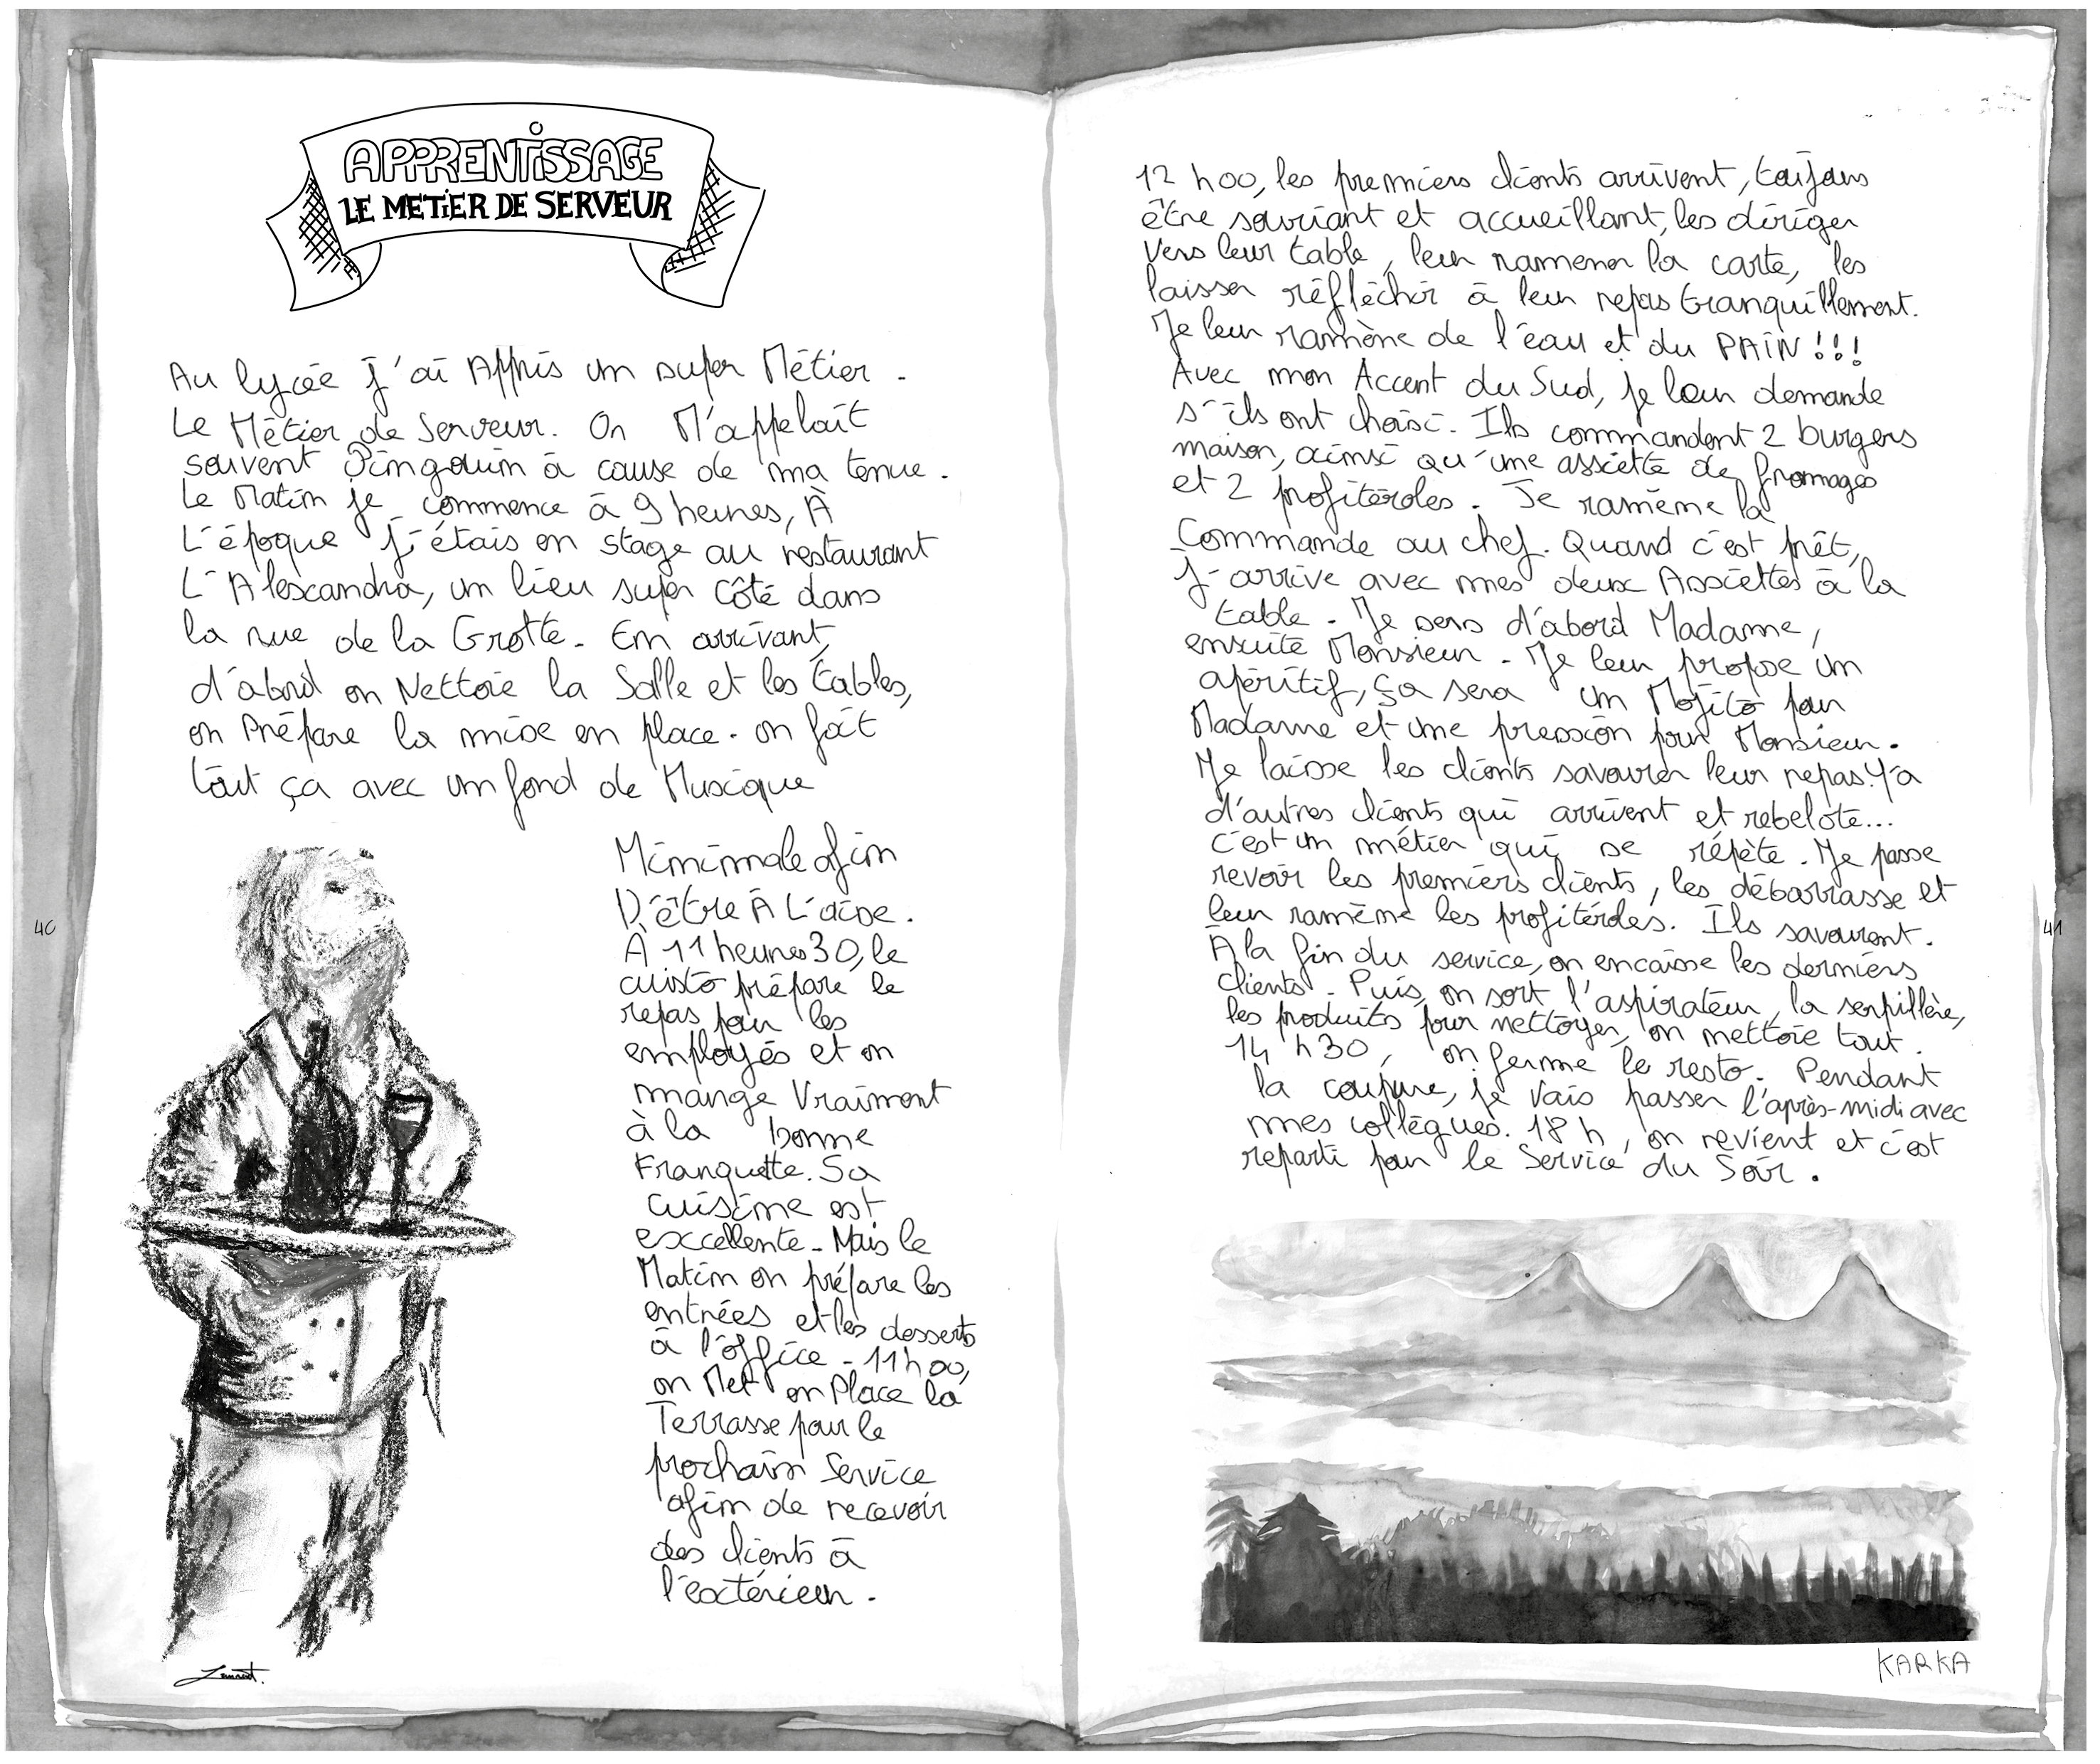 APPRENTISSAGE
LE METIER DE SERVEUR
Au lycée j'ai Appris un super Métier.
Le Métier de Serveur. On M'appelait
souvent Pingouin à cause de ma tenue.
Le Matin je commence à 9 heures, À
L'époque j'étais en stage au restaurant
L'Alexandra, un lieu super côté dans
la rue de la Grotte. En arrivant,
d'abord on Nettoie la Salle et les tables,
on Prépare la mise en place. on fait
tout ça avec un fond de Musique
Minimale afin
D'être À L'aise.
À 11 heures 30, le
cuisto prépare le
repas pour les
employés et on
mange Vraiment
à la bonne
Franquette. Sa
cuisine est
excellente. Mais le
Matin on prépare les
entrées et les desserts
à l'office. 11h00,
on Met en Place la
Terrasse pour le
prochain Service
afin de recevoir
des clients à
l'extérieur.
40
12h00, les premiers clients arrivent, toujours
être souriant et accueillant, les diriger
vers leur table, leur ramener la carte, les
laisser réfléchir à leur repas tranquillement.
Je leur ramène de l'eau et du PAIN!!!
Avec mon Accent du Sud, je leur demande
s'ils ont choisi. Ils commandent 2 burgers
maison, ainsi qu'une assiette de fromages
et 2 profitéroles. Je ramème la
Commande au chef. Quand c'est prêt,
j'arrive avec mes deux Assiettes à la
table. Je sers d'abord Madame,
ensuite Monsieur. Je leur propose un
apéritif, ça sera un Mojito pour
Madame et une pression pour Monsieur.
Je laisse les clients savourer leur repas. Y'a
d'autres clients qui arrivent et rebelote...
c'est un métier qui se répète. Je passe
revoir les premiers clients, les débarrasse et
leur ramème les profitéroles. Ils savourent.
À la fin du service, on encaisse les derniers
clients. Puis, on sort l'aspirateur, la serpillère,
les produits pour nettoyer, on nettoie tout.
14h30, on ferme le resto. Pendant
la coupure, je vais passer l'après-midi avec
mes collègues. 18h, on revient et c'est
reparti pour le Service du Soir.
41
KARKA